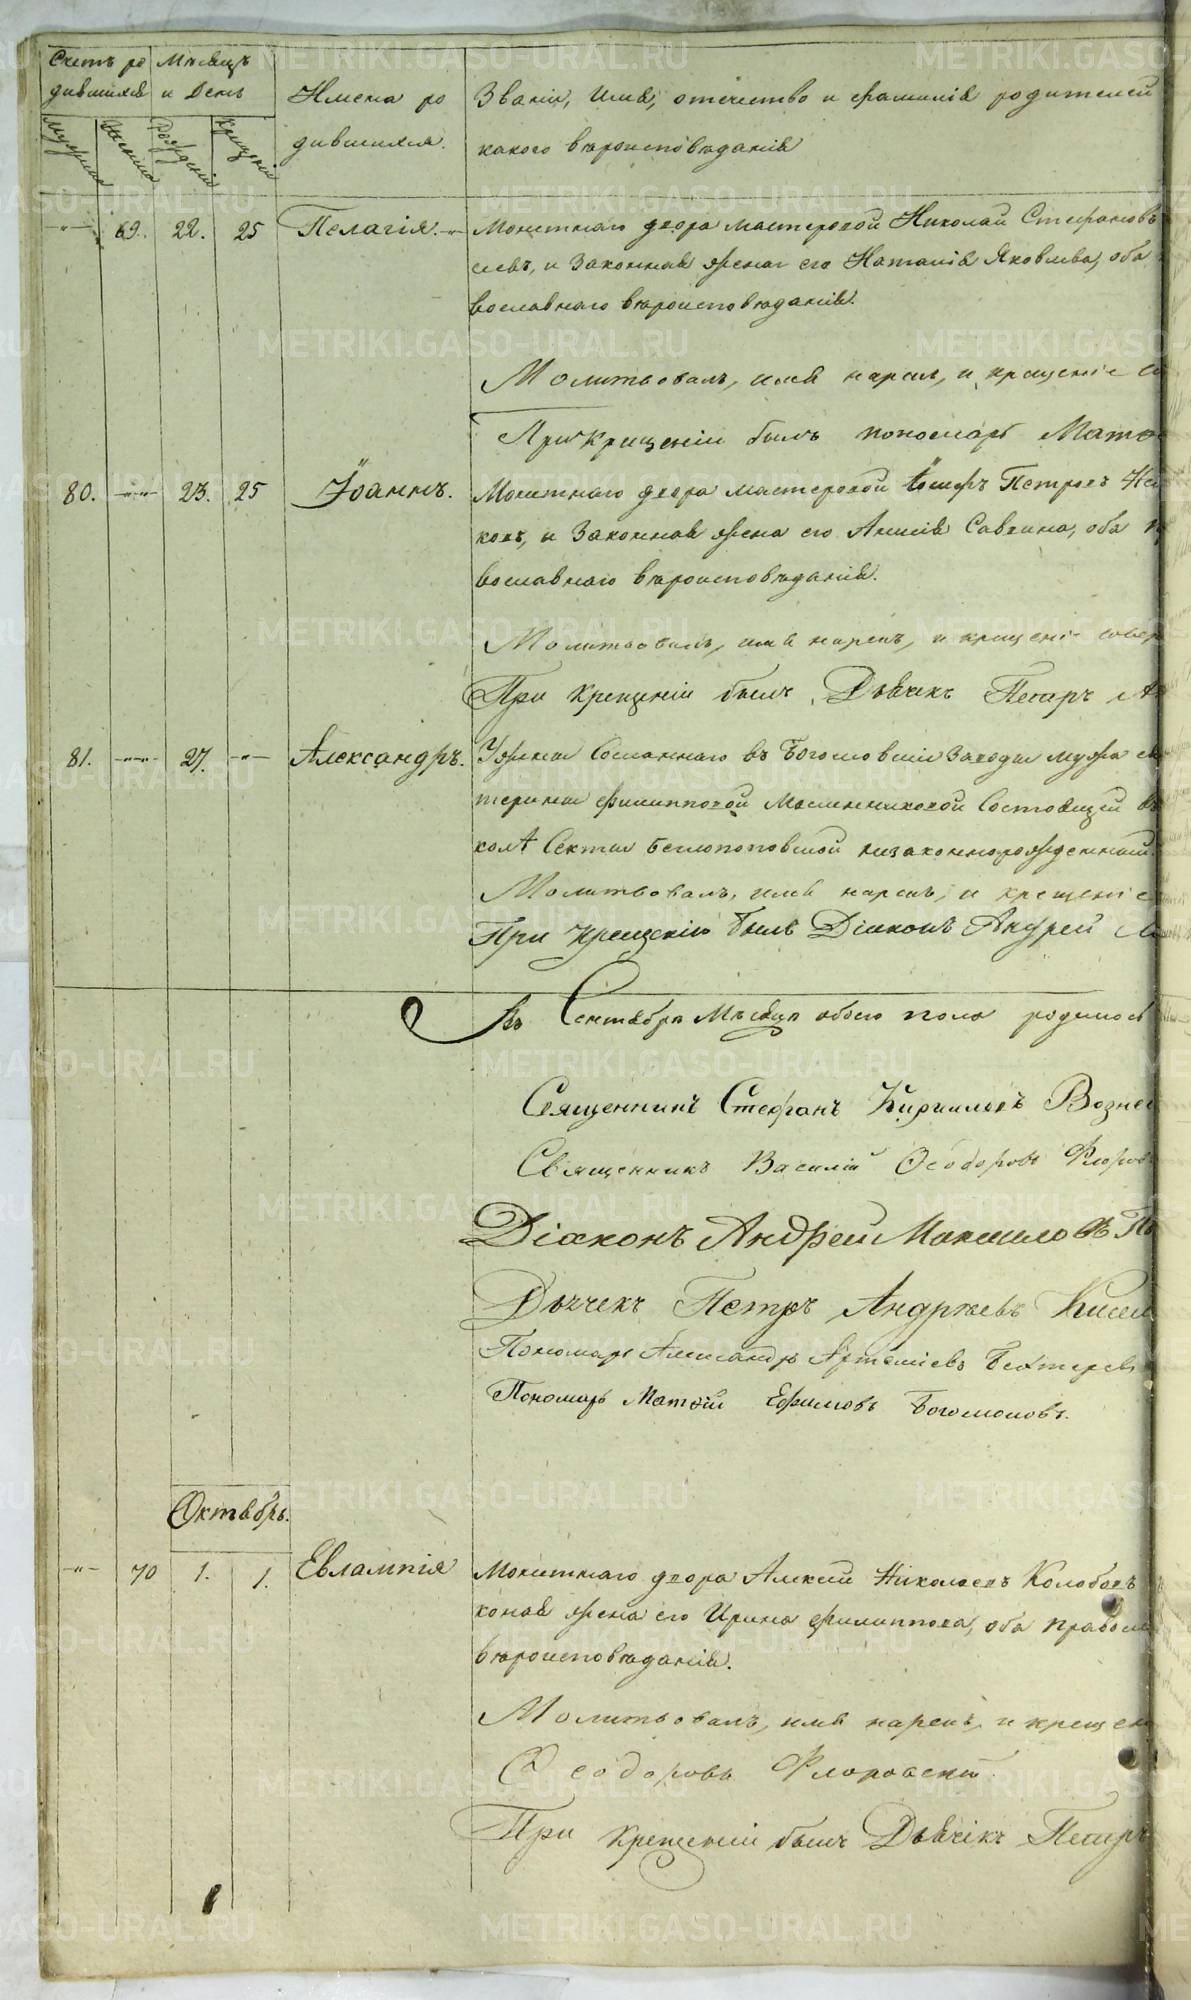 Счетъ ро
дившихся
Мѣсяцъ
и День
Имена ро
дившихся.
Званіе, имя, отечество и фамилія родителей
какого вѣроисповѣданія
Мужеска
Женска
Рожденія
Крещенія
69. 22. 25 Пелагія. Монетнаго двора мастеровой Николай Стефановъ
севъ, и законная жена его Наталія Яковлева, оба
вославнаго вѣроисповѣданія.
Молитвовалъ, имя нарек, и крещеніе
При крещеніи былъ пономарь
80. 23. 25 Іоаннъ. Монетнаго двора мастеровой Іосифъ Петровъ
ковъ, и законная жена его Анисія Саввина, оба
вославнаго вѣроисповѣданія.
Молитвовалъ, имя нарекъ, и крещеніе совер
При крещеніи былъ Дьячекъ Петръ
81. 27. Александръ. У жены сосланнаго въ Богословскіе заводы мужа
терины Филипповой Масленниковой состоящей
колѣ секты беглопоповской незаконнорожденный.
Молитвовалъ, имя нарекъ, и крещеніе
При крещеніи былъ Діаконъ Андрей
Въ Сентябрѣ Мѣсяцѣ обоего пола родилось
Священникъ Стефанъ Кирилловъ Вознес
Священникъ Василій Ѳеодоровъ Флоров
Діаконъ Андрей Максимовъ
Дьячекъ Петръ Андреевъ Кисел
Пономарь Александръ Артеміевъ Бехтерев
Пономарь Матѳій Ефимовъ Богомоловъ.
Октябрь.
70 1. 1. Евлампія Монетнаго двора Алексій Николаевъ Колобовъ
конная жена его Ирина Филиппова, оба правосл
вѣроисповѣданія.
Молитвовалъ, имя нарекъ, и крещен
Ѳеодоровъ Флоровскій.
При крещеніи былъ Дьячекъ Петръ
METRIKI.GASO-URAL.RU